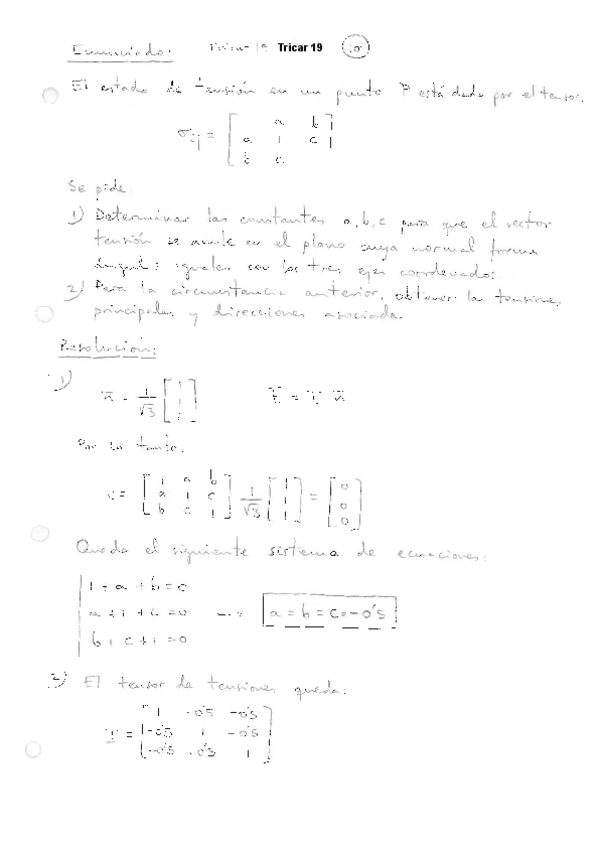 Enunciado: Tricar 19 Tricar 19
El estado de tensión en un punto P está dado por el tensor.
σij = [ a b
a 1 c
b c ]
Se pide:
1) Determinar las constantes a, b, c para que el vector
tensión se anule en el plano cuya normal forma
ángulos iguales con los tres ejes coordenados.
2) Para la circunstancia anterior, obtener las tensiones
principales y direcciones asociadas.
Resolución:
1)
n = 1/√3 [ 1 1 1 ]
Por lo tanto,
= [ 1 a b
a 1 c
b c 1 ] 1/√3 [ 1 1 1 ] = [ 0 0 0 ]
Queda el siguiente sistema de ecuaciones:
1 + a + b = 0
a + 1 + c = 0 a = b = c = -0'5
b + c + 1 = 0
2) El tensor de tensiones queda:
T = [ 1 -0'5 -0'5
-0'5 1 -0'5
-0'5 -0'5 1 ]